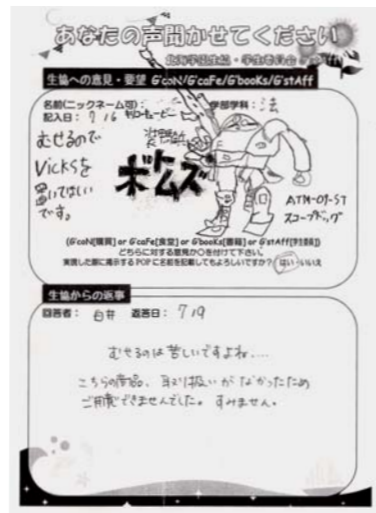 あなたの声聞かせてください
北海学園生協・学生委員会
生協への意見・要望 G'caN/G'caFe/G'booKs/G'stAff
名前(ニックネーム可): キリコ・キュービー
学部学科: 法
記入日: 7 16
むせるので
Vicksを
置いてほしい
です。
装甲騎兵
ボトムズ
ATM-09-ST
スコープドッグ
(G'caN[購買] or G'caFe[食堂] or G'booKs[書籍] or G'stAff[学生委員])
どちらに対する意見か○を付けて下さい。
実現した際に掲示するPOPに名前を記載してもよろしいですか? はい・いいえ
生協からの返事
回答者: 白井 返答日: 7 19
むせるのは苦しいですよね....
こちらの商品、取り扱いがなかったため
ご用意できませんでした。すみません。